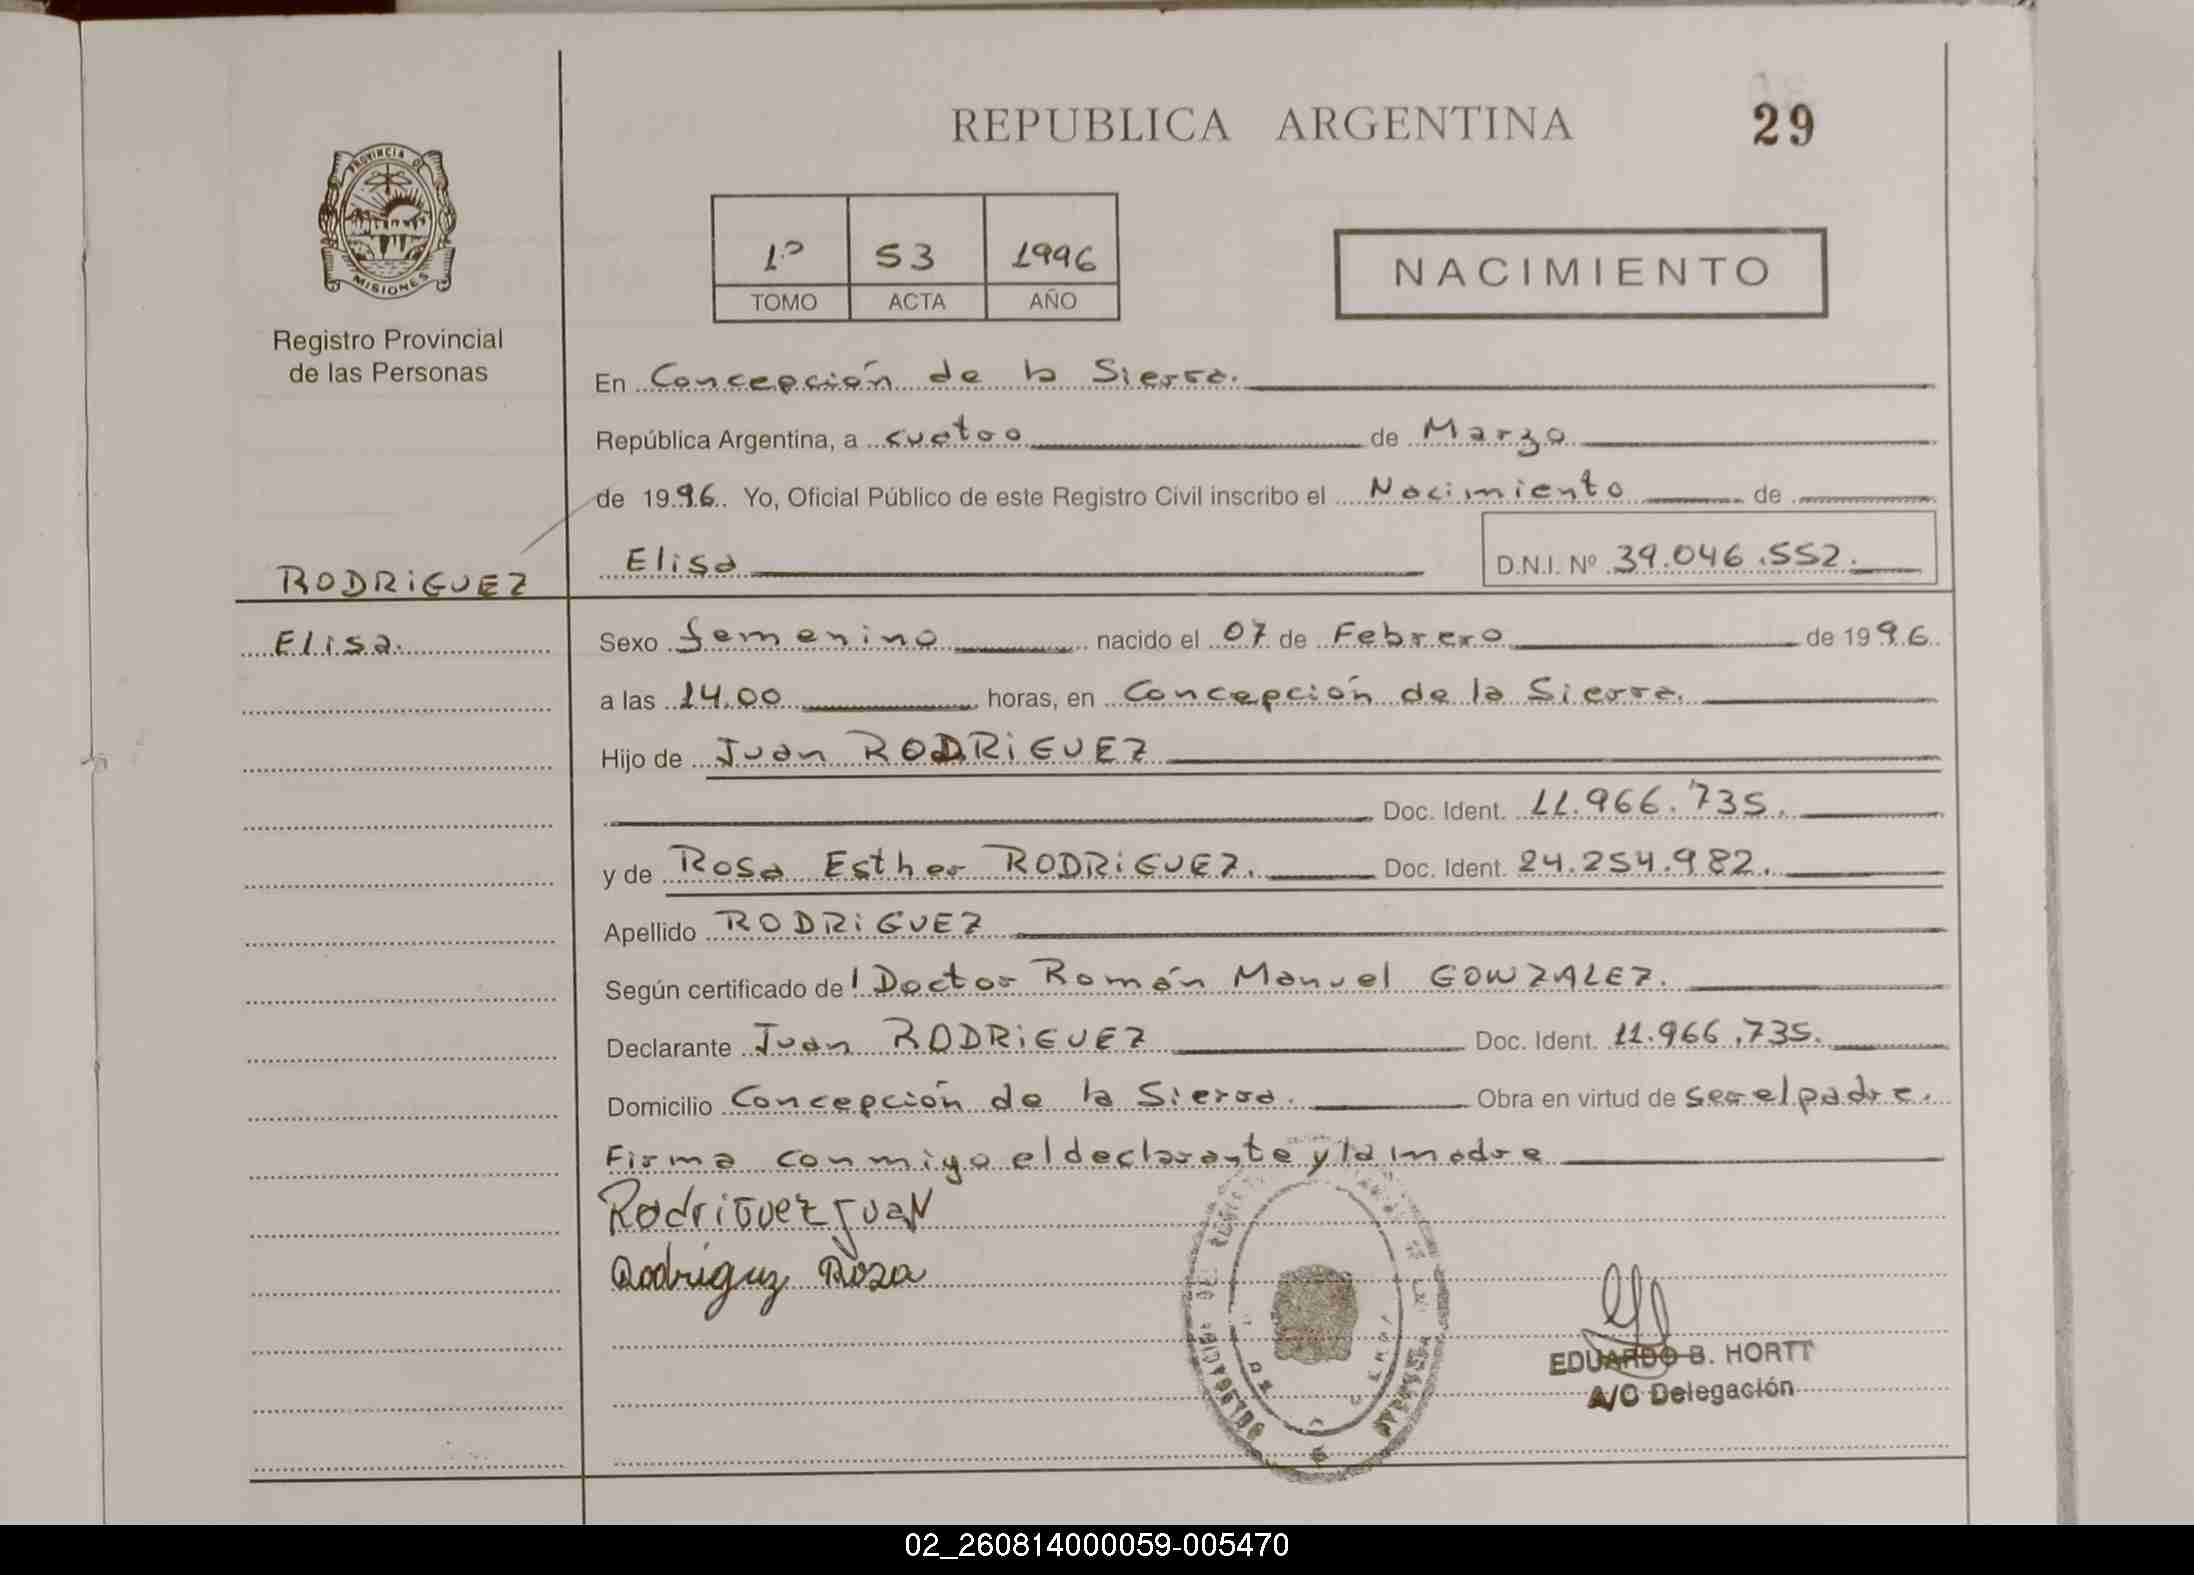 REPUBLICA ARGENTINA
29
PROVINCIA DE
MISIONES
Registro Provincial
de las Personas
1º 53 1996
TOMO ACTA AÑO
NACIMIENTO
En Concepción de la Sierra.
República Argentina, a cuatro de Marzo
de 1996. Yo, Oficial Público de este Registro Civil inscribo el Nacimiento de
Elisa D.N.I. Nº 39.046.552.
RODRiGUEZ
Elisa.
Sexo femenino nacido el 07 de Febrero de 1996.
a las 14.00 horas, en Concepción de la Sierra.
Hijo de Juan RODRiGUEZ
Doc. Ident. 11.966.735.
y de Rosa Esther RODRiGUEZ. Doc. Ident. 24.254.982.
Apellido RODRiGUEZ
Según certificado del Doctor Román Manuel GONZALEZ.
Declarante Juan RODRiGUEZ Doc. Ident. 11.966.735.
Domicilio Concepción de la Sierra. Obra en virtud de ser el padre.
Firma conmigo el declarante y la madre
RodriGuez JuaN
Rodriguz Rosa
DELEGACION DEL
EDUARDO B. HORTT
A/C Delegación
02_260814000059-005470